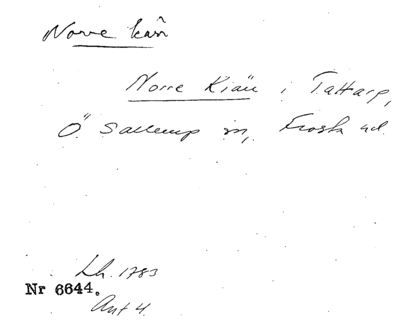 Norre kärr
Norre Kiär i Tattarp,
Ö. Sallerup sn, Frosta hd.
Lh. 1783
Nr 6644.
Akt 4.